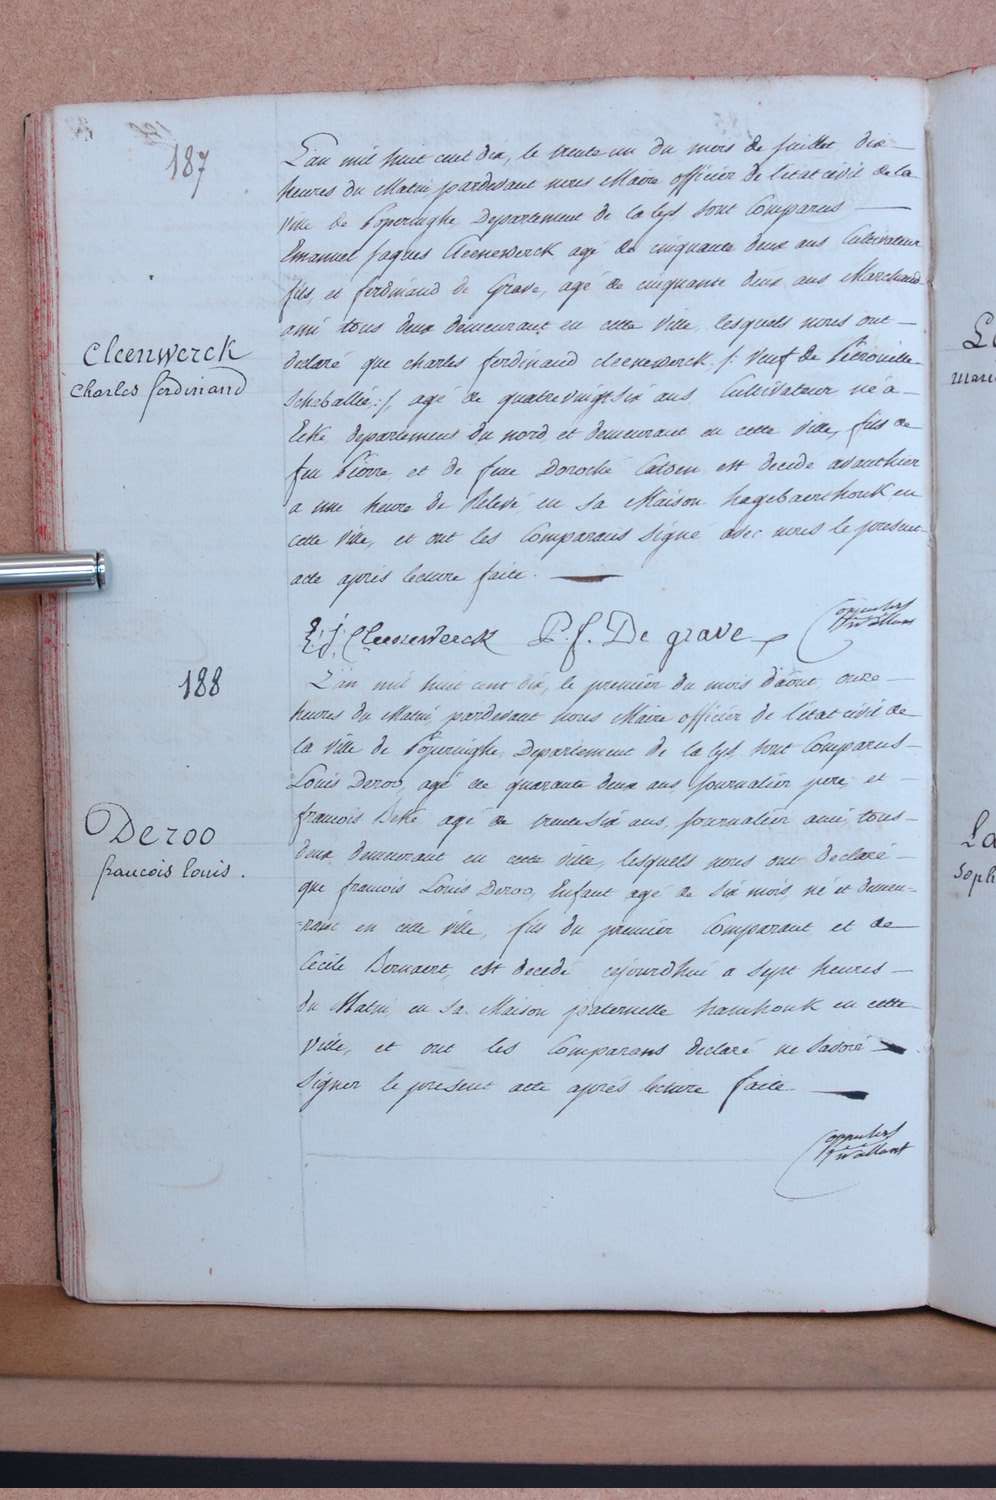 187
L'an mil huit cent dix, le trente un du mois de Juillet dix
heures du Matin pardevant nous Maire officier de l'etat civil de la
ville de Poperinghe, Departement de la lys sont Comparus
Emanuel Jaques Cleenewerck agé de cinquante deux ans Cultivateur
fils, et ferdinand de Grave, agé de cinquante deux ans Marchand
ami tous deux demeurant en cette ville, lesquels nous ont
Cleenwerck
declaré que charles ferdinand cleenewerck /: veuf de Petronille
Charles ferdinand
:/, agé de quatrevingtsix ans Cultivateur né a
Ecke departement du nord, et demeurant en cette ville, fils de
feu Piérre et de feue Dorothé est decedé avanthier
a une heure de Relevé en sa Maison hagebaerthouk en
cette ville, et ont les Comparans signé avec nous le present
acte aprés lecture faite.
E: J: Cleenewerck P. f. De grave
188
L'an mil huit cent dix, le premier du mois d'août, onze
heures du Matin, pardevant nous Maire officier de l'etat civil de
la ville de Poperinghe, Departement de la lys, sont Comparus
Louis Deroo, agé de quarante deux ans Journalier pere, et
Deroo
francois agé de trente six ans, Journalier ami, tous
deux demeurant en cette ville, lesquels nous ont declaré
francois louis.
que francois Louis Deroo, Enfant agé de six mois, né et demeu-
-rant en cette ville, fils du premier Comparant et de
Cecile Bernaert, est decedé cejourd'hui a sept heures
du Matin en sa Maison paternelle hamhouk en cette
ville, et ont les Comparans declaré ne savoir
signer le present acte aprés lecture faite